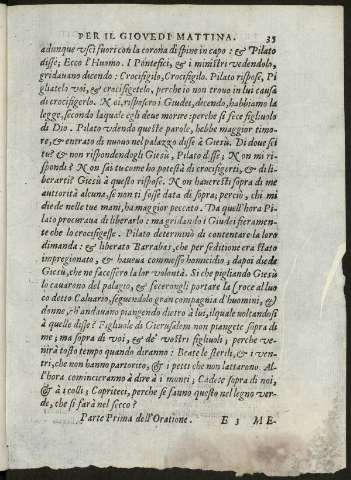 PER IL GIOVEDI MATTINA. 35
adunque uscì fuori con la corona di spine in capo: & Pilato
disse; Ecco l'Huomo. I Pontefici, & i ministri vedendolo,
gridauano dicendo: Crocifigilo, Crocifigilo. Pilato rispose, Pi
gliatelo voi, & crocifigetelo, perche io non trouo in lui causa
di crocifigerlo. Noi, risposero i Giudei, dicendo, habbiamo la
legge, secondo la quale egli deue morire: perche si fece figliuolo
di Dio. Pilato vdendo queste parole, hebbe maggior timo-
re, & entrato di nuouo nel palazzo disse à Giesù. Di doue sei
tu? & non rispondendogli Giesù, Pilato disse; Non mi ri-
spondi? Non sai tu come ho potestà di crocifigerti, & di li-
berarti? Giesù à questo rispose. Non haueresti sopra di me
autorità alcuna, se non ti fosse data di sopra; perciò, chi mi
diede nelle tue mani, ha maggior peccato. Da quell'hora Pi-
lato procuraua di liberarlo: ma gridando i Giudei fieramen-
te che lo crocifigesse. Pilato determinò di contentare la loro
dimanda: & liberato Barrabas, che per seditione era stato
impregionato, & haueua commesso homicidio, dapoi diede
Giesù, che ne facessero la lor volontà. Si che pigliando Giesù
lo cauarono del palagio, & fecerongli portare la Croce al luo
co detto Caluario, seguendolo gran compagnia d'huomini, &
donne, ch'andauano piangendo dietro à lui, il quale uoltandosi
à quelle disse? Figliuole di Gierusalem non piangete sopra di
me; ma sopra di voi, & de' vostri figliuoli; perche ve-
nirà tosto tempo quando diranno: Beate le sterili, & i ven-
tri, che non hanno partorito, & i petti che non lattarono. Al-
l'hora cominceranno à dire à i monti; Cadete sopra di noi,
& à i colli; Copriteci, perche se fanno questo nel legno ver-
de, che si farà nel secco?
Parte Prima dell'Oratione. E 3 ME-